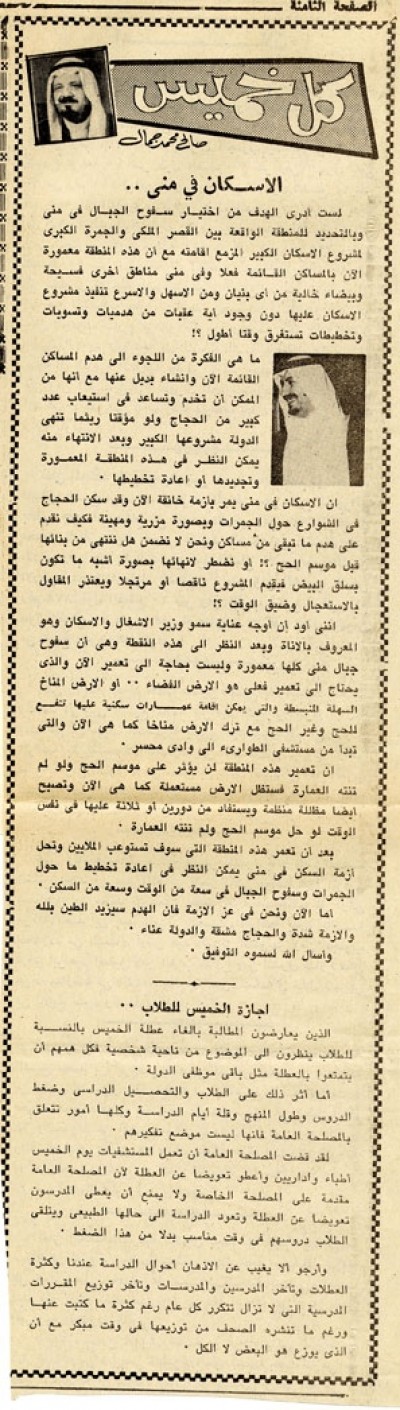 الصفحة الثامنة
كل خميس
صالح محمد جمال
الاسكان في منى ..
لست أدرى الهدف من اختيار سفوح الجبال فى منى
وبالتحديد للمنطقة الواقعة بين القصر الملكى والجمرة الكبرى
لمشروع الاسكان الكبير المزمع اقامته مع أن هذه المنطقة معمورة
الآن بالمساكن القائمة فعلا وفى منى مناطق اخرى فسيحة
وبيضاء خالية من أى بنيان ومن الاسهل والاسرع تنفيذ مشروع
الاسكان عليها دون وجود أية عقبات من هدميات وتسويات
وتخطيطات تستغرق وقتا أطول ؟!
ما هى الفكرة من اللجوء الى هدم المساكن
القائمة الآن وانشاء بديل عنها مع أنها من
الممكن أن تخدم وتساعد فى استيعاب عدد
كبير من الحجاج ولو مؤقتا ريثما تنهى
الدولة مشروعها الكبير وبعد الانتهاء منه
يمكن النظر فى هذه المنطقة المعمورة
وتجديدها او اعادة تخطيطها .
ان الاسكان فى منى يمر بازمة خانقة الآن وقد سكن الحجاج
فى الشوارع حول الجمرات وبصورة مزرية ومهينة فكيف نقدم
على هدم ما تبقى من مساكن ونحن لا نضمن هل ننتهى من بنائها
قبل موسم الحج ؟! أو نضطر لانهائها بصورة أشبه ما تكون
بسلق البيض فيقدم المشروع ناقصا أو مرتجلا ويعتذر المقاول
بالاستعجال وضيق الوقت ؟!
اننى أود ان أوجه عناية سمو وزير الاشغال والاسكان وهو
المعروف بالاناة وبعد النظر الى هذه النقطة وهى أن سفوح
جبال منى كلها معمورة وليست بحاجة الى تعمير الآن والذى
يحتاج الى تعمير فعلى هو الارض الفضاء .. أو الارض المناخ
السهلة المنبسطة والتى يمكن اقامة عمارات سكنية عليها تنفع
للحج وغير الحج مع ترك الارض مناخا كما هى الآن والتى
تبدأ من مستشفى الطوارىء الى وادى محسر .
ان تعمير هذه المنطقة لن يؤثر على موسم الحج ولو لم
تنته العمارة فستظل الارض مستعملة كما هى الآن وتصبح
أيضا مظللة منظمة ويستفاد من دورين أو ثلاثة عليها فى نفس
الوقت لو حل موسم الحج ولم تنته العمارة .
بعد أن تعمر هذه المنطقة التى سوف تستوعب الملايين وتحل
أزمة السكن فى منى يمكن النظر فى اعادة تخطيط ما حول
الجمرات وسفوح الجبال فى سعة من الوقت وسعة من السكن .
اما الآن ونحن فى عز الازمة فان الهدم سيزيد الطين بلله
والازمة شدة والحجاج مشقة والدولة عناء .
وأسال الله لسموه التوفيق .
اجازة الخميس للطلاب ..
الذين يعارضون المطالبة بالغاء عطلة الخميس بالنسبة
للطلاب ينظرون الى الموضوع من ناحية شخصية فكل همهم أن
يتمتعوا بالعطلة مثل باقى موظفى الدولة .
أما أثر ذلك على الطلاب والتحصيل الدراسى وضغط
الدروس وطول المنهج وقلة أيام الدراسة وكلها أمور تتعلق
بالمصلحة العامة فانها ليست موضع تفكيرهم .
لقد قضت المصلحة العامة أن تعمل المستشفيات يوم الخميس
أطباء واداريين وأعطو تعويضا عن العطلة لأن المصلحة العامة
مقدمة على المصلحة الخاصة ولا يمنع أن يعطى المدرسون
تعويضا عن العطلة وتعود الدراسة الى حالها الطبيعى ويتلقى
الطلاب دروسهم فى وقت مناسب بدلا من هذا الضغط .
وأرجو ألا يغيب عن الاذهان أحوال الدراسة عندنا وكثرة
العطلات وتأخر المدرسين والمدرسات وتأخر توزيع المقررات
المدرسية التى لا تزال تتكرر كل عام رغم كثرة ما كتبت عنها
ورغم ما تنشره الصحف من توزيعها فى وقت مبكر مع أن
الذى يوزع هو البعض لا الكل .